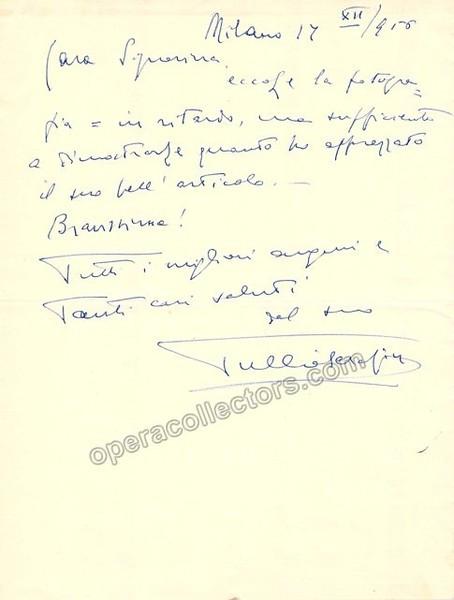 Milano 17 XII/956
Cara Signorina,
eccole la fotogra=
fia = in ritardo, ma sufficiente
a dimostrarle quanto ho apprezzato
il suo bell' articolo. —
Bravissima!
Tutti i migliori auguri e
Tanti cari saluti
dal suo
Tullio Serafin
operacollectors.com